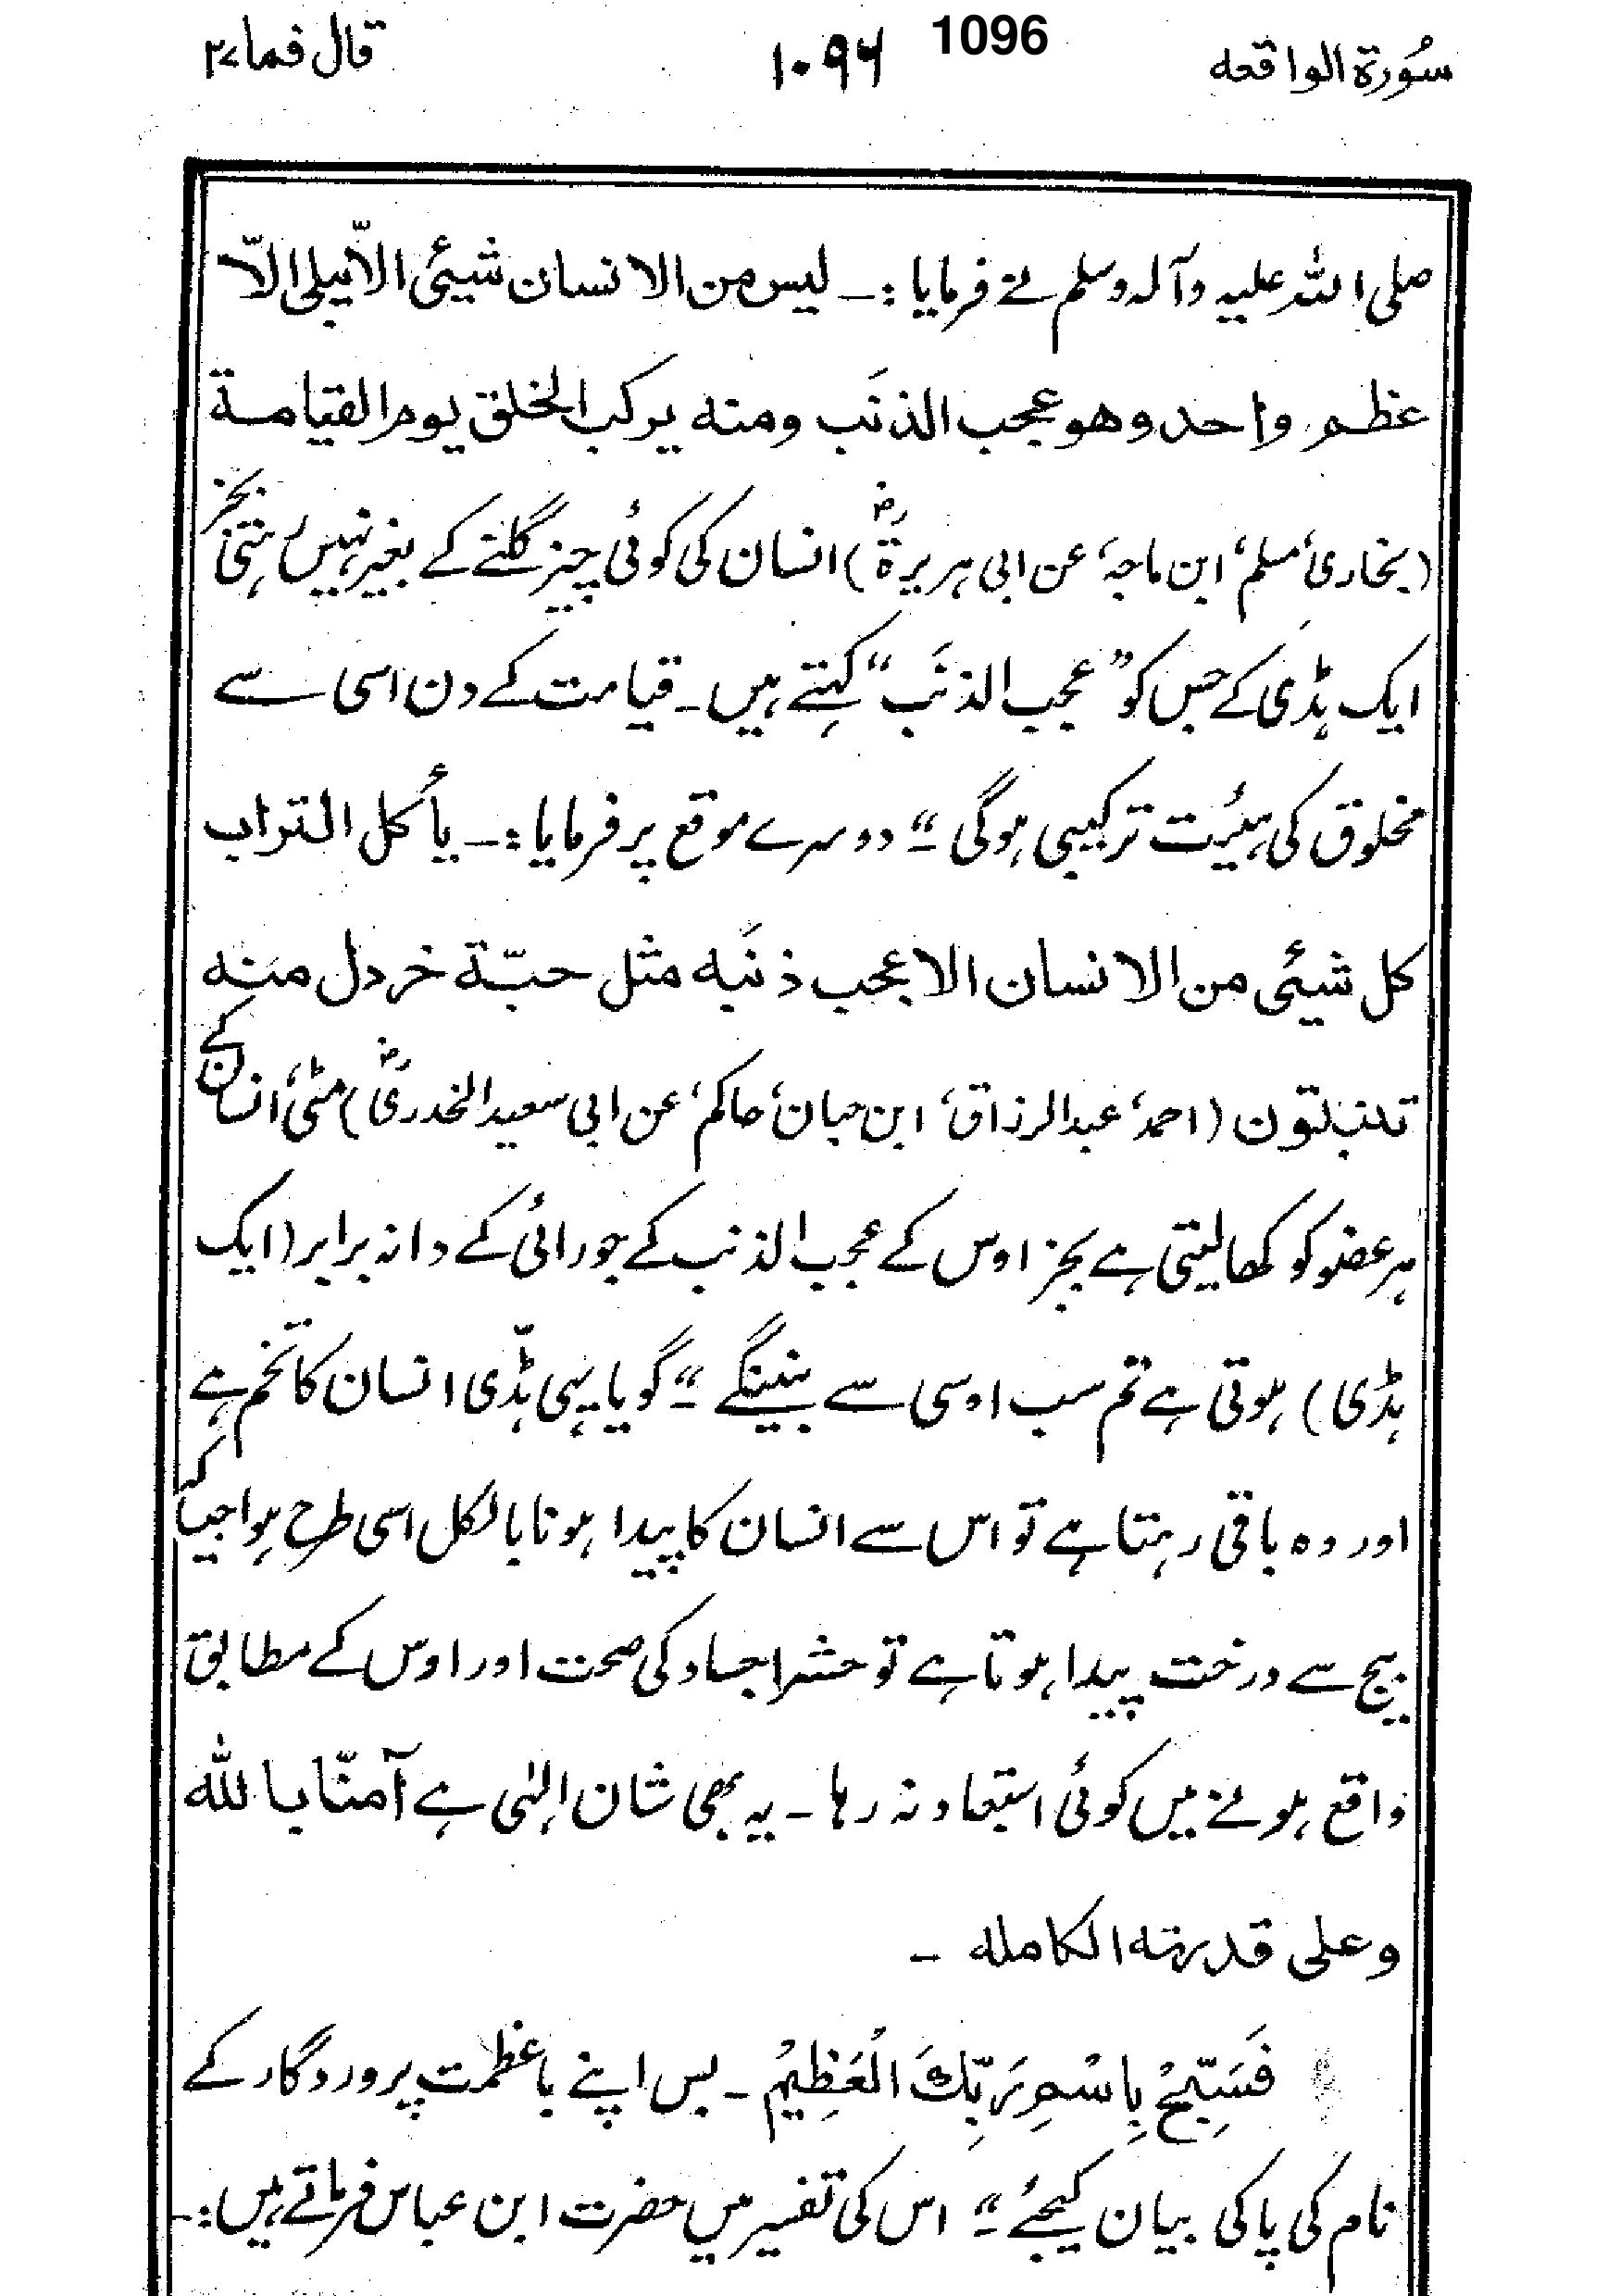 سُورۃ الواقعہ ۱۰۹۶ 1096 قال فما ۲۷
صلی اللہ علیہ وآلہ وسلم نے فرمایا :۔ لیس من الانسان شیئی الّا یبلی الّا
عظم واحد وھو عجب الذنَب ومنه یرکب الخلق یوم القیامة
(بخاری، مسلم، ابن ماجہ، عن ابی ہریرۃؓ) انسان کی کوئی چیز گلنے کے بغیر نہیں رہتی بجز
ایک ہڈی کے جس کو ”عجب الذنَب“ کہتے ہیں۔ قیامت کے دن اسی سے
مخلوق کی ہیئت ترکیبی ہوگی ۔“ دوسرے موقع پر فرمایا :۔ یأکل التراب
کل شیئی من الانسان الا عجب ذنَبه مثل حبّة خردل منه
تنبتون (احمد، عبدالرزاق، ابن حبان، حاکم، عن ابی سعید الخدریؓ) مٹی، انسان کے
ہر عضو کو کھا لیتی ہے بجز اوس کے عجب الذنب کے جو رائی کے دانہ برابر (ایک
ہڈی) ہوتی ہے تم سب اوسی سے بنینگے ۔“ گویا یہی ہڈّی انسان کا تخم ہے
اور وہ باقی رہتا ہے تو اس سے انسان کا پیدا ہونا بالکل اسی طرح ہوا جیسا کہ
بیج سے درخت پیدا ہوتا ہے تو حشر اجساد کی صحت اور اوس کے مطابق
واقع ہونے میں کوئی استبعاد نہ رہا ۔ یہ بھی شان الہٰی ہے آمنّا باللہ
وعلی قدرته الکامله ۔
فَسَبِّحْ بِاسْمِ رَبِّكَ الْعَظِیْمُ ۔ بس اپنے باعظمت پروردگار کے
نام کی پاکی بیان کیجئے ۔“ اس کی تفسیر میں حضرت ابن عباس فرماتے ہیں :۔